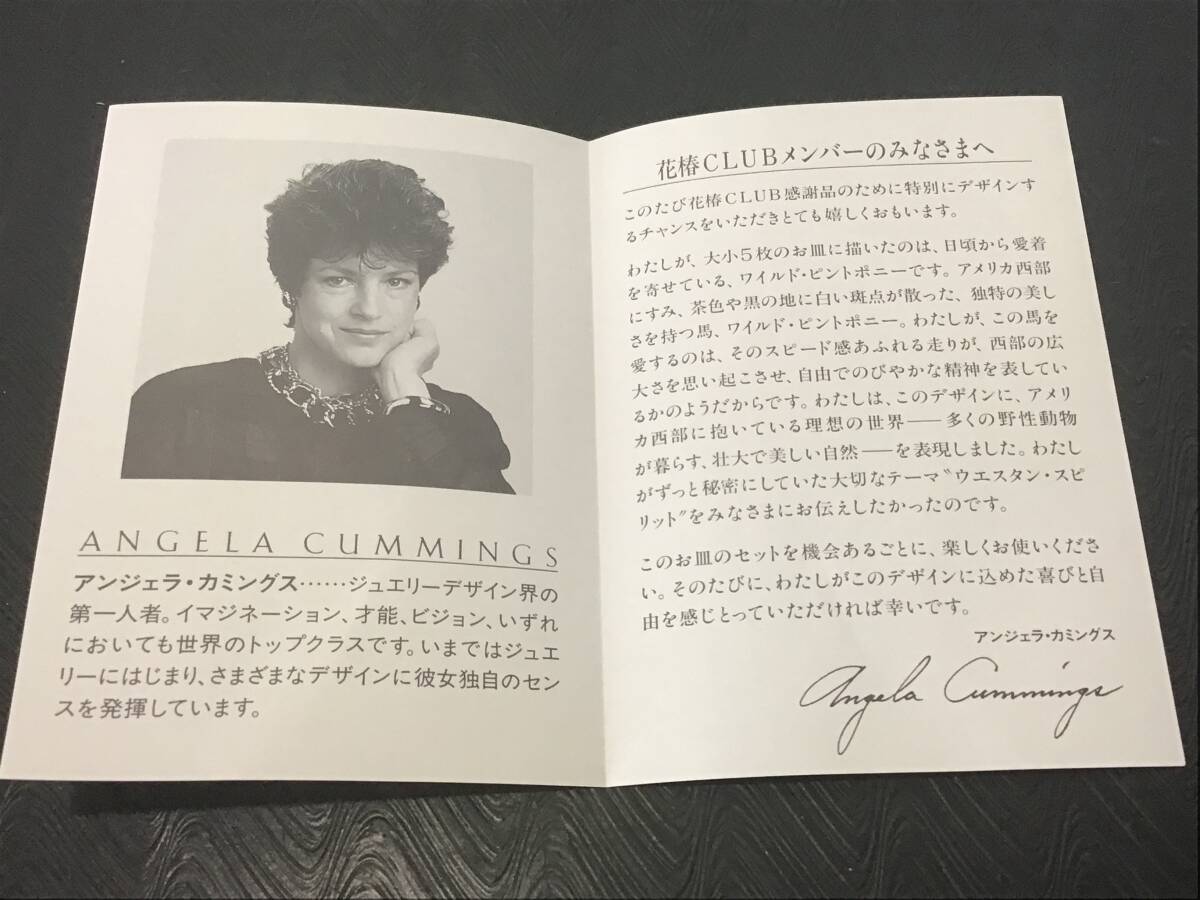 ANGELA CUMMINGS
アンジェラ・カミングス……ジュエリーデザイン界の
第一人者。イマジネーション、才能、ビジョン、いずれ
においても世界のトップクラスです。いまではジュエ
リーにはじまり、さまざまなデザインに彼女独自のセン
スを発揮しています。
花椿CLUBメンバーのみなさまへ
このたび花椿CLUB感謝品のために特別にデザインす
るチャンスをいただきとても嬉しくおもいます。
わたしが、大小5枚のお皿に描いたのは、日頃から愛着
を寄せている、ワイルド・ピントポニーです。アメリカ西部
にすみ、茶色や黒の地に白い斑点が散った、独特の美し
さを持つ馬、ワイルド・ピントポニー。わたしが、この馬を
愛するのは、そのスピード感あふれる走りが、西部の広
大さを思い起こさせ、自由でのびやかな精神を表してい
るかのようだからです。わたしは、このデザインに、アメリ
カ西部に抱いている理想の世界――多くの野性動物
が暮らす、壮大で美しい自然――を表現しました。わたし
がずっと秘密にしていた大切なテーマ〝ウエスタン・スピ
リット〟をみなさまにお伝えしたかったのです。
このお皿のセットを機会あるごとに、楽しくお使いくださ
い。そのたびに、わたしがこのデザインに込めた喜びと自
由を感じとっていただければ幸いです。
アンジェラ・カミングス
Angela Cummings